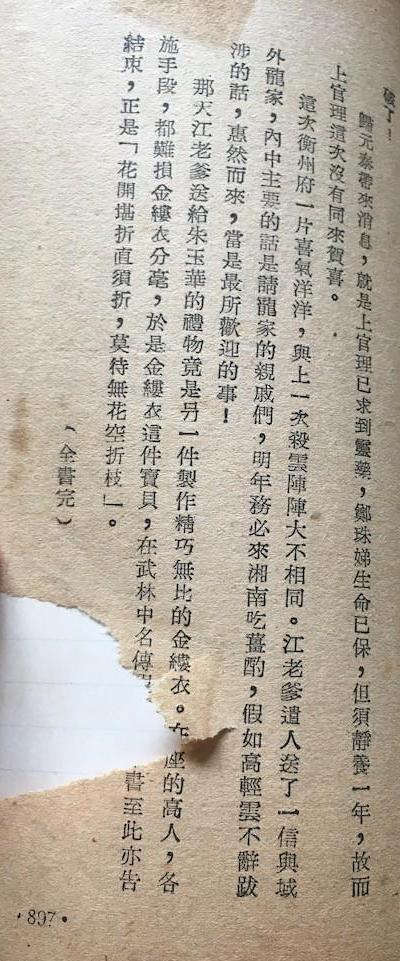 破了！
歸元泰帶來消息，就是上官理已求到靈藥，鄭珠娣生命已保，但須靜養一年，故而
上官理這次沒有同來賀喜。
這次衡州府一片喜氣洋洋，與上一次殺雲陣陣大不相同。江老爹遣人送了一信與域
外龍家，內中主要的話是請龍家的親戚們，明年務必來湘南吃薑酌，假如高輕雲不辭跋
涉的話，惠然而來，當是最所歡迎的事！
那天江老爹送給朱玉華的禮物竟是另一件製作精巧無比的金縷衣。在座的高人，各
施手段，都難損金縷衣分毫，於是金縷衣這件寶貝，在武林中名傳 書至此亦告
結束，正是「花開堪折直須折，莫待無花空折枝」。
（全書完）
·897·